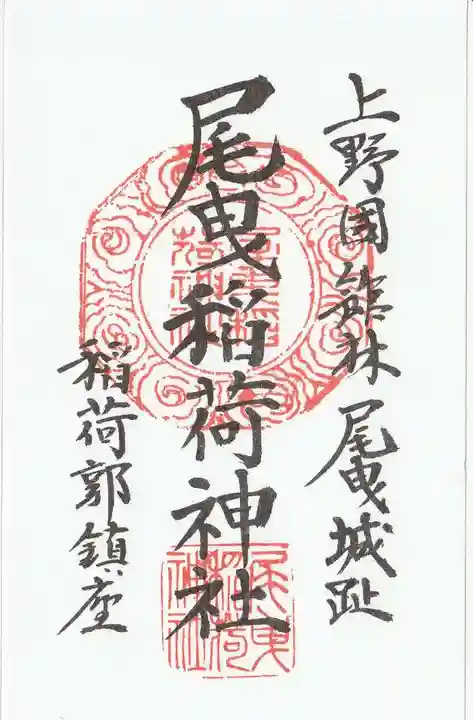 上野國舘林尾曳城趾
尾曳稲荷神社
稲荷郭鎮座
尾曳稲荷神社
尾曳稲荷神社